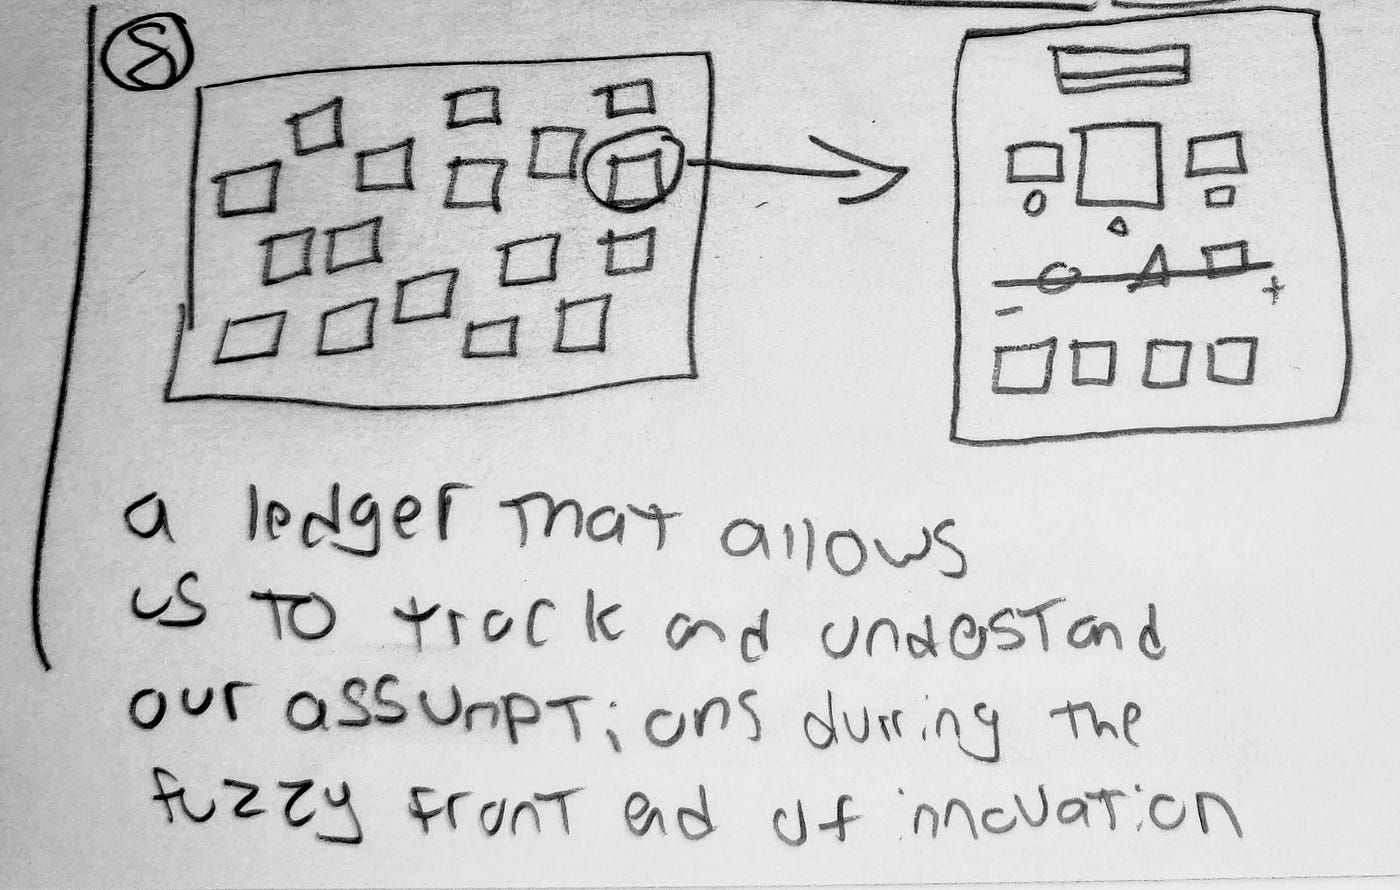 8
- +
a ledger that allows
us to track and undestand
our assumptions durring the
fuzzy front end of innovation